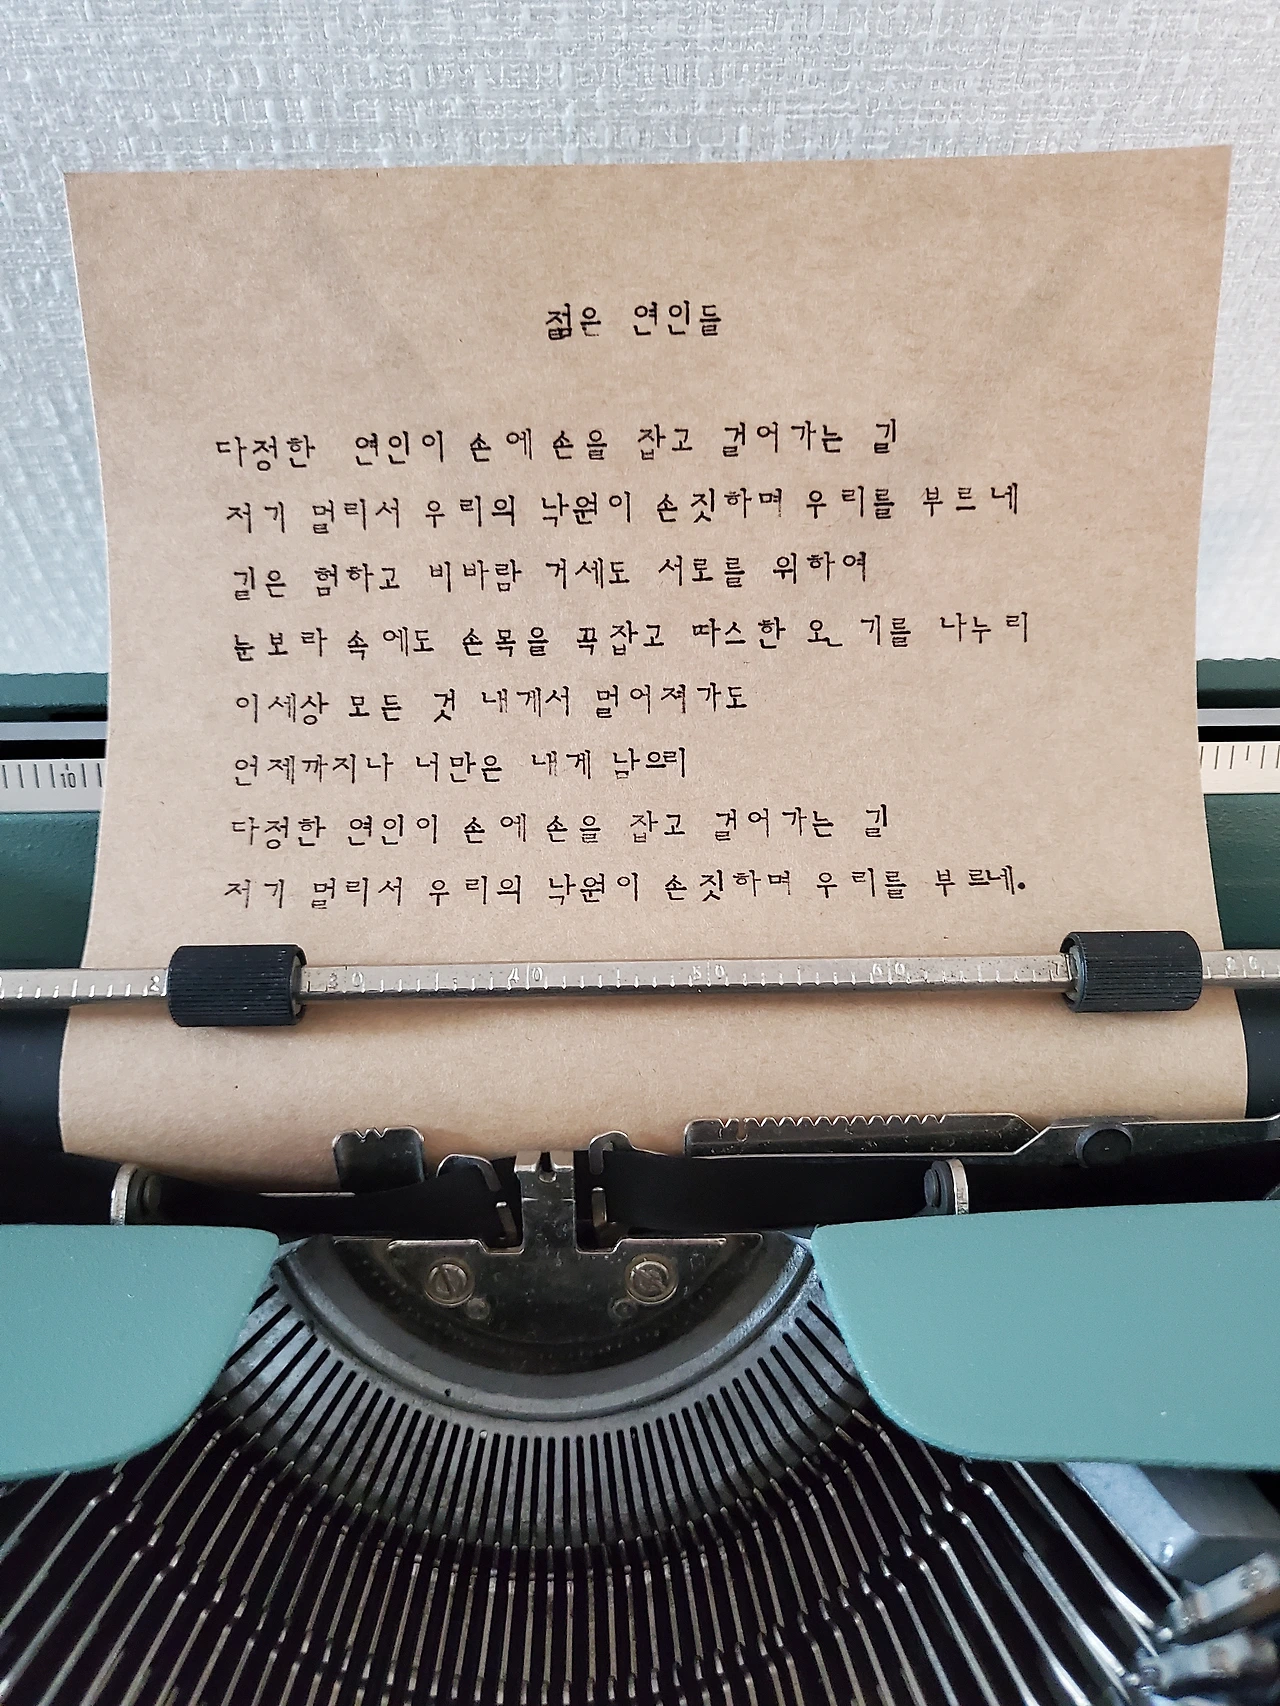 젊은 연인들
다정한 연인이 손에 손을 잡고 걸어가는 길
저기 멀리서 우리의 낙원이 손짓하며 우리를 부르네
길은 험하고 비바람 거세도 서로를 위하여
눈보라 속에도 손목을 꼭잡고 따스한 온기를 나누리
이세상 모든 것 내게서 멀어져가도
언제까지나 너만은 내게 남으리
다정한 연인이 손에 손을 잡고 걸어가는 길
저기 멀리서 우리의 낙원이 손짓하며 우리를 부르네.
10
30 40 50 60